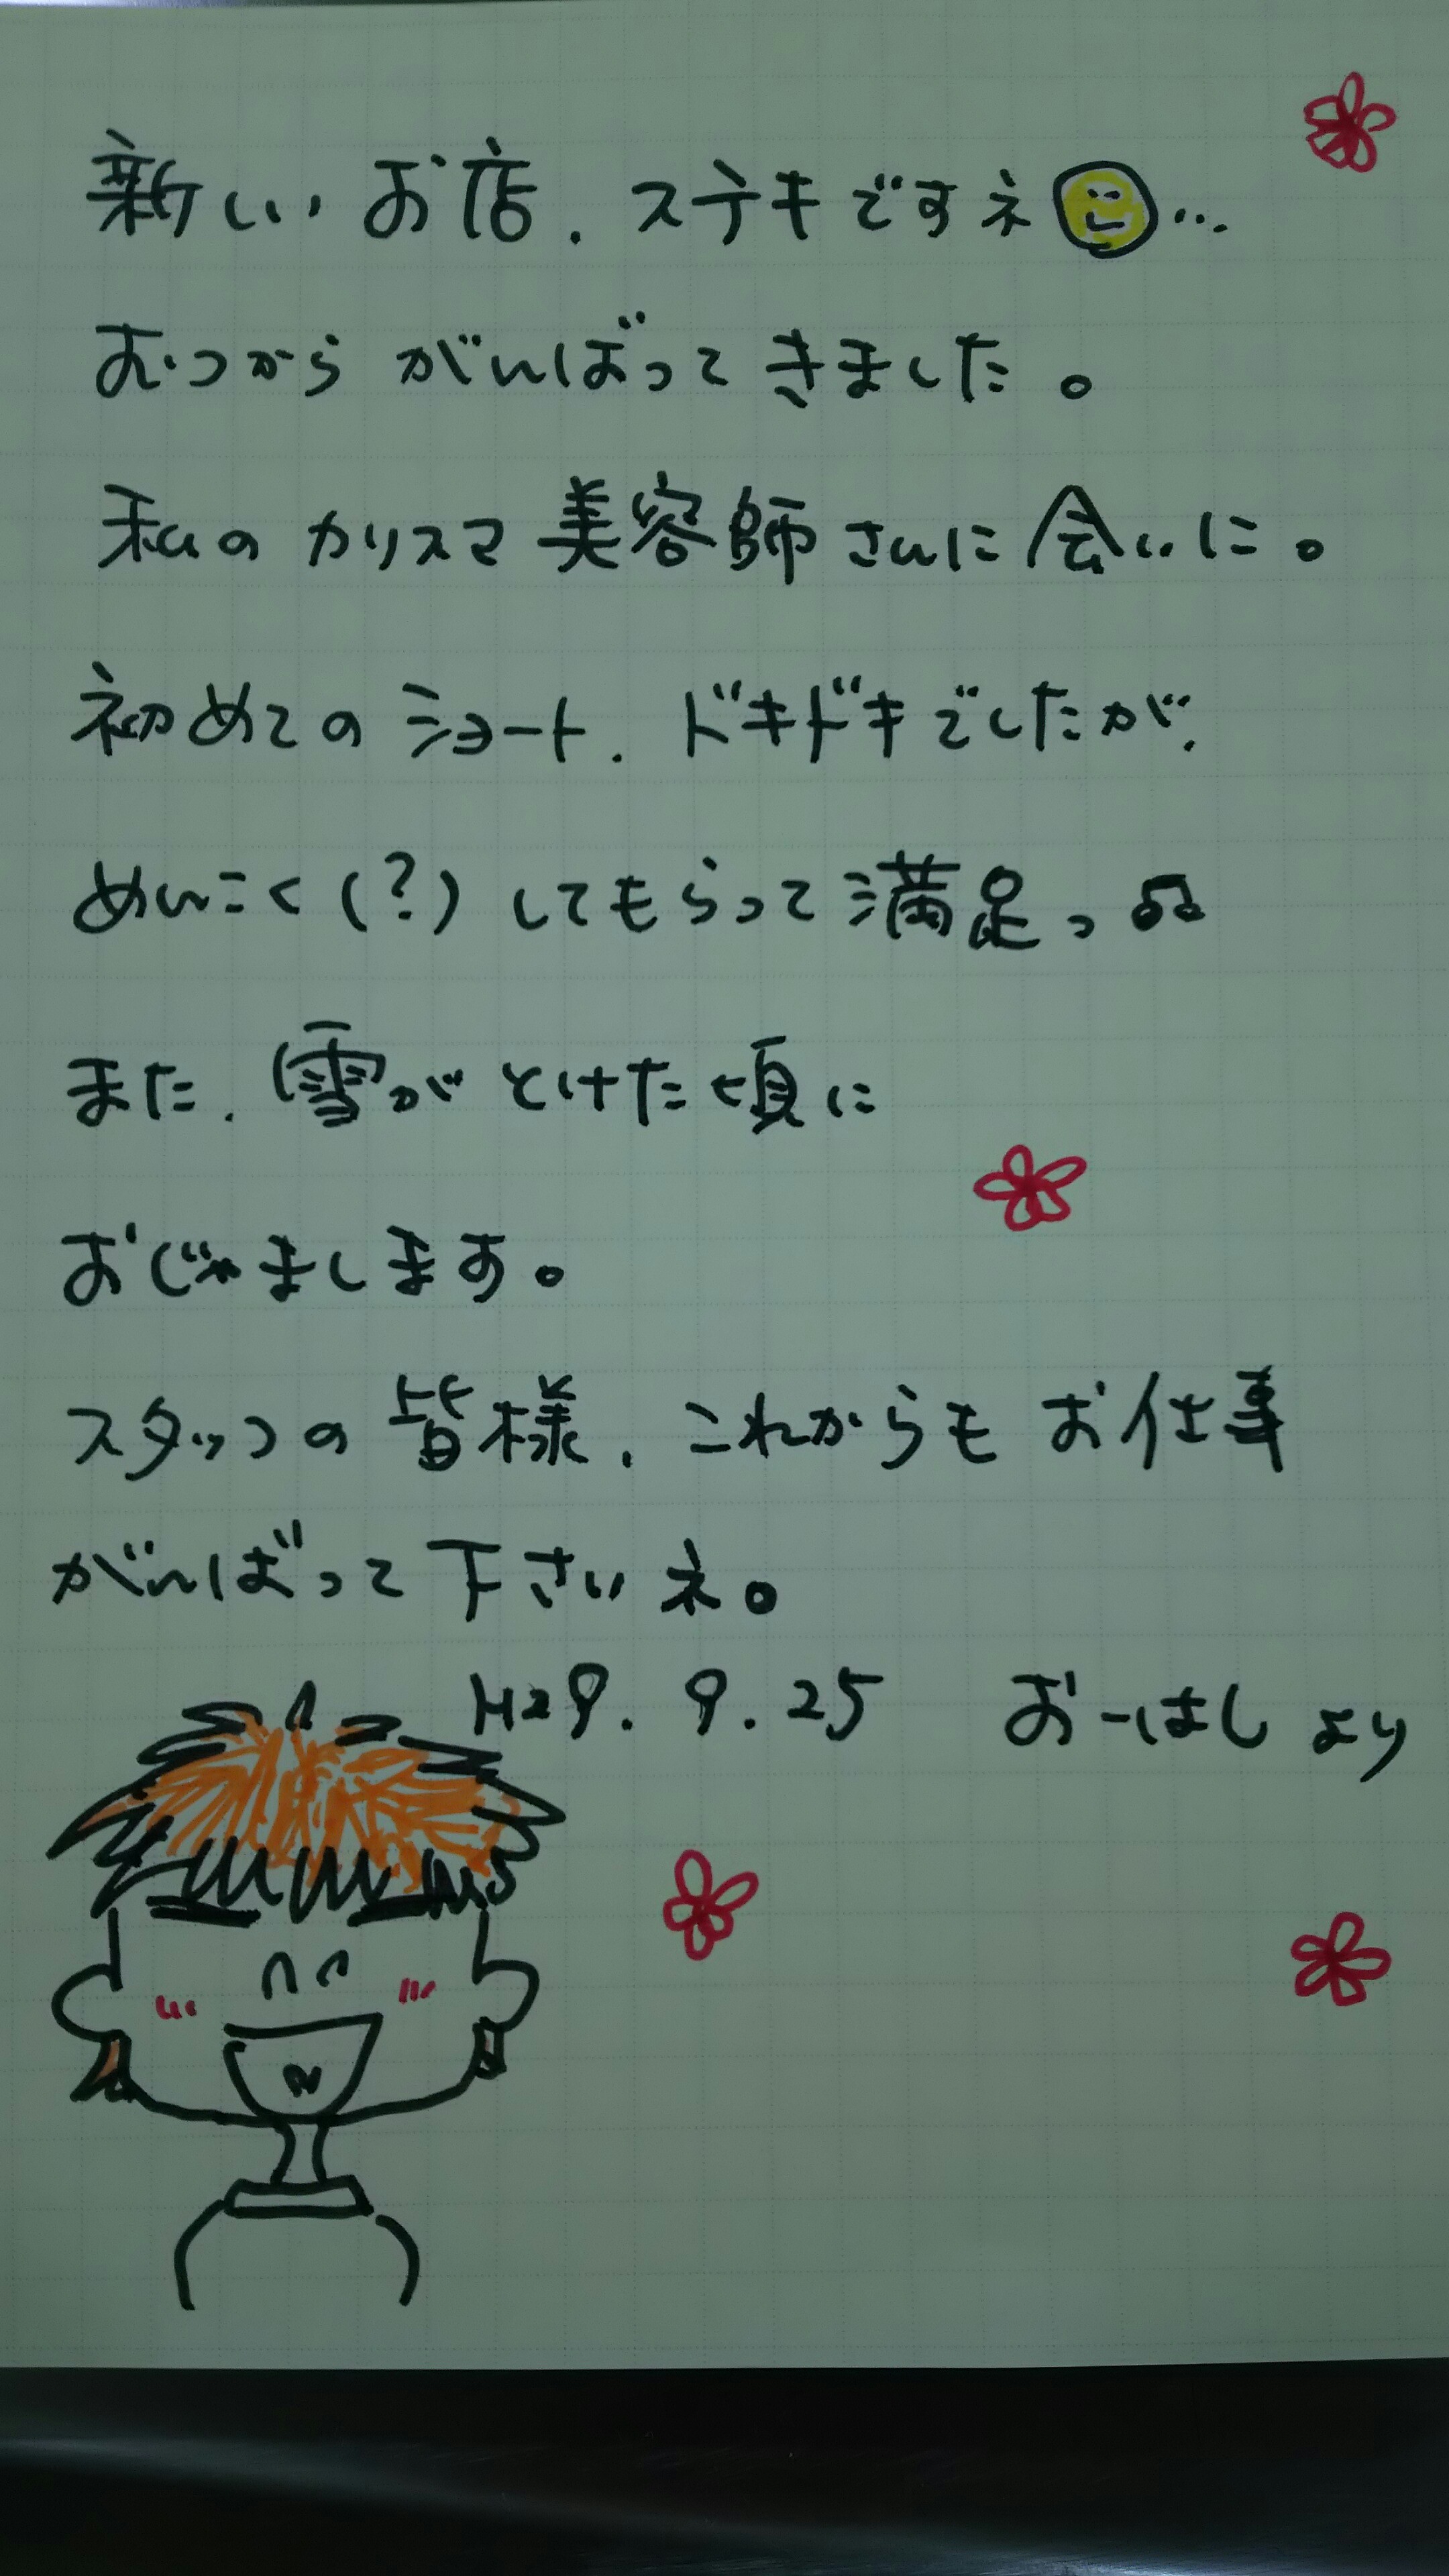 新しいお店、ステキですネ…
むつからがんばってきました。
私のカリスマ美容師さんに会いに。
初めてのショート、ドキドキでしたが、
めんこく(?)してもらって満足っ♫
また、雪がとけた頃に
おじゃまします。
スタッフの皆様、これからもお仕事
がんばって下さいネ。
H29.9.25 おーはしより